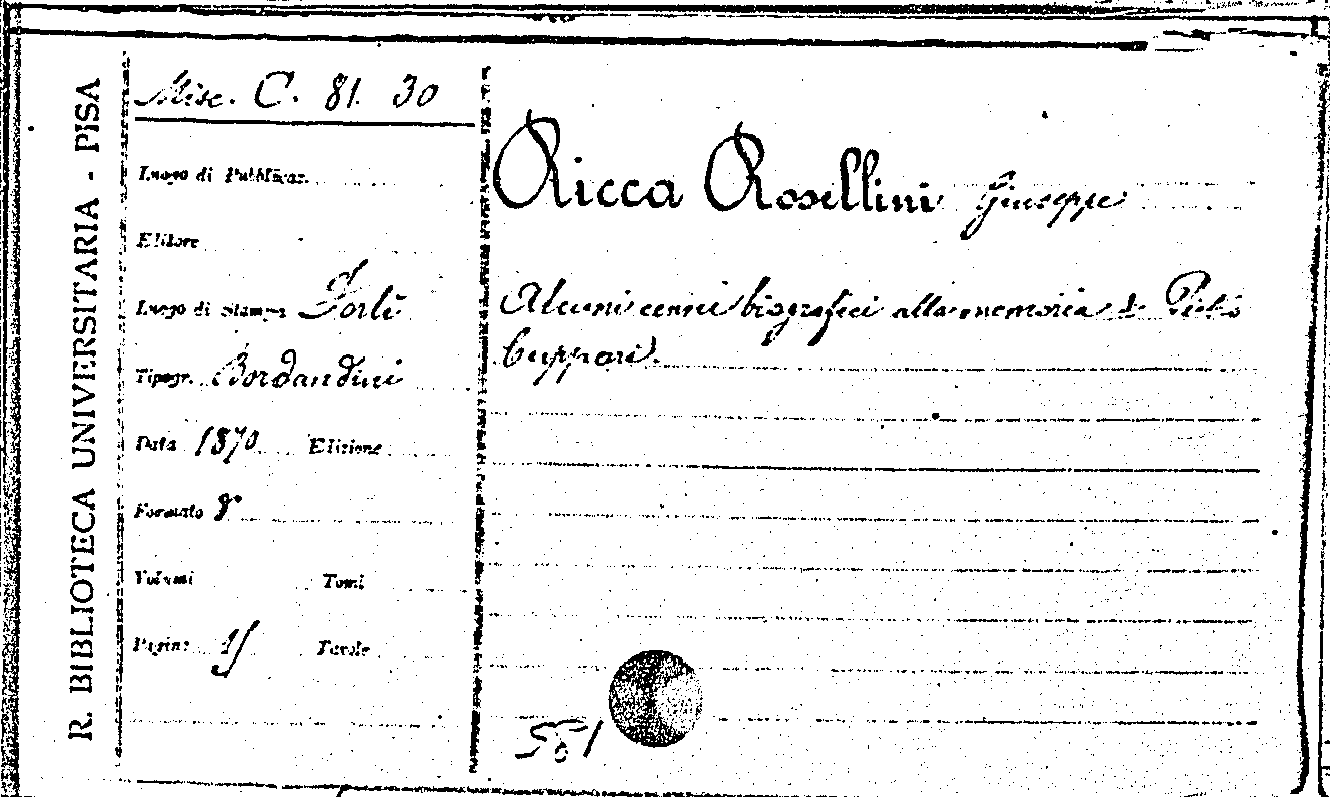 R. BIBLIOTECA UNIVERSITARIA - PISA
Misc. C. 81. 30
Luogo di Pubblicaz.
Editore
Luogo di stampa Forlì
Tipogr. Bordandini
Data 1870 Edizione
Formato 8°
Volumi Tomi
Pagine 15 Tavole
Ricca Rosellini Giuseppe
Alcuni cenni biografici alla memoria di Pietro
Cuppari.
551